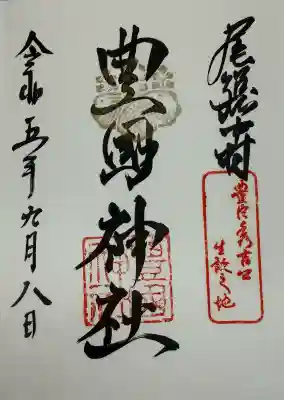 尾張中村
豊臣秀吉公
生誕之地
豊國神社
令和五年六月八日